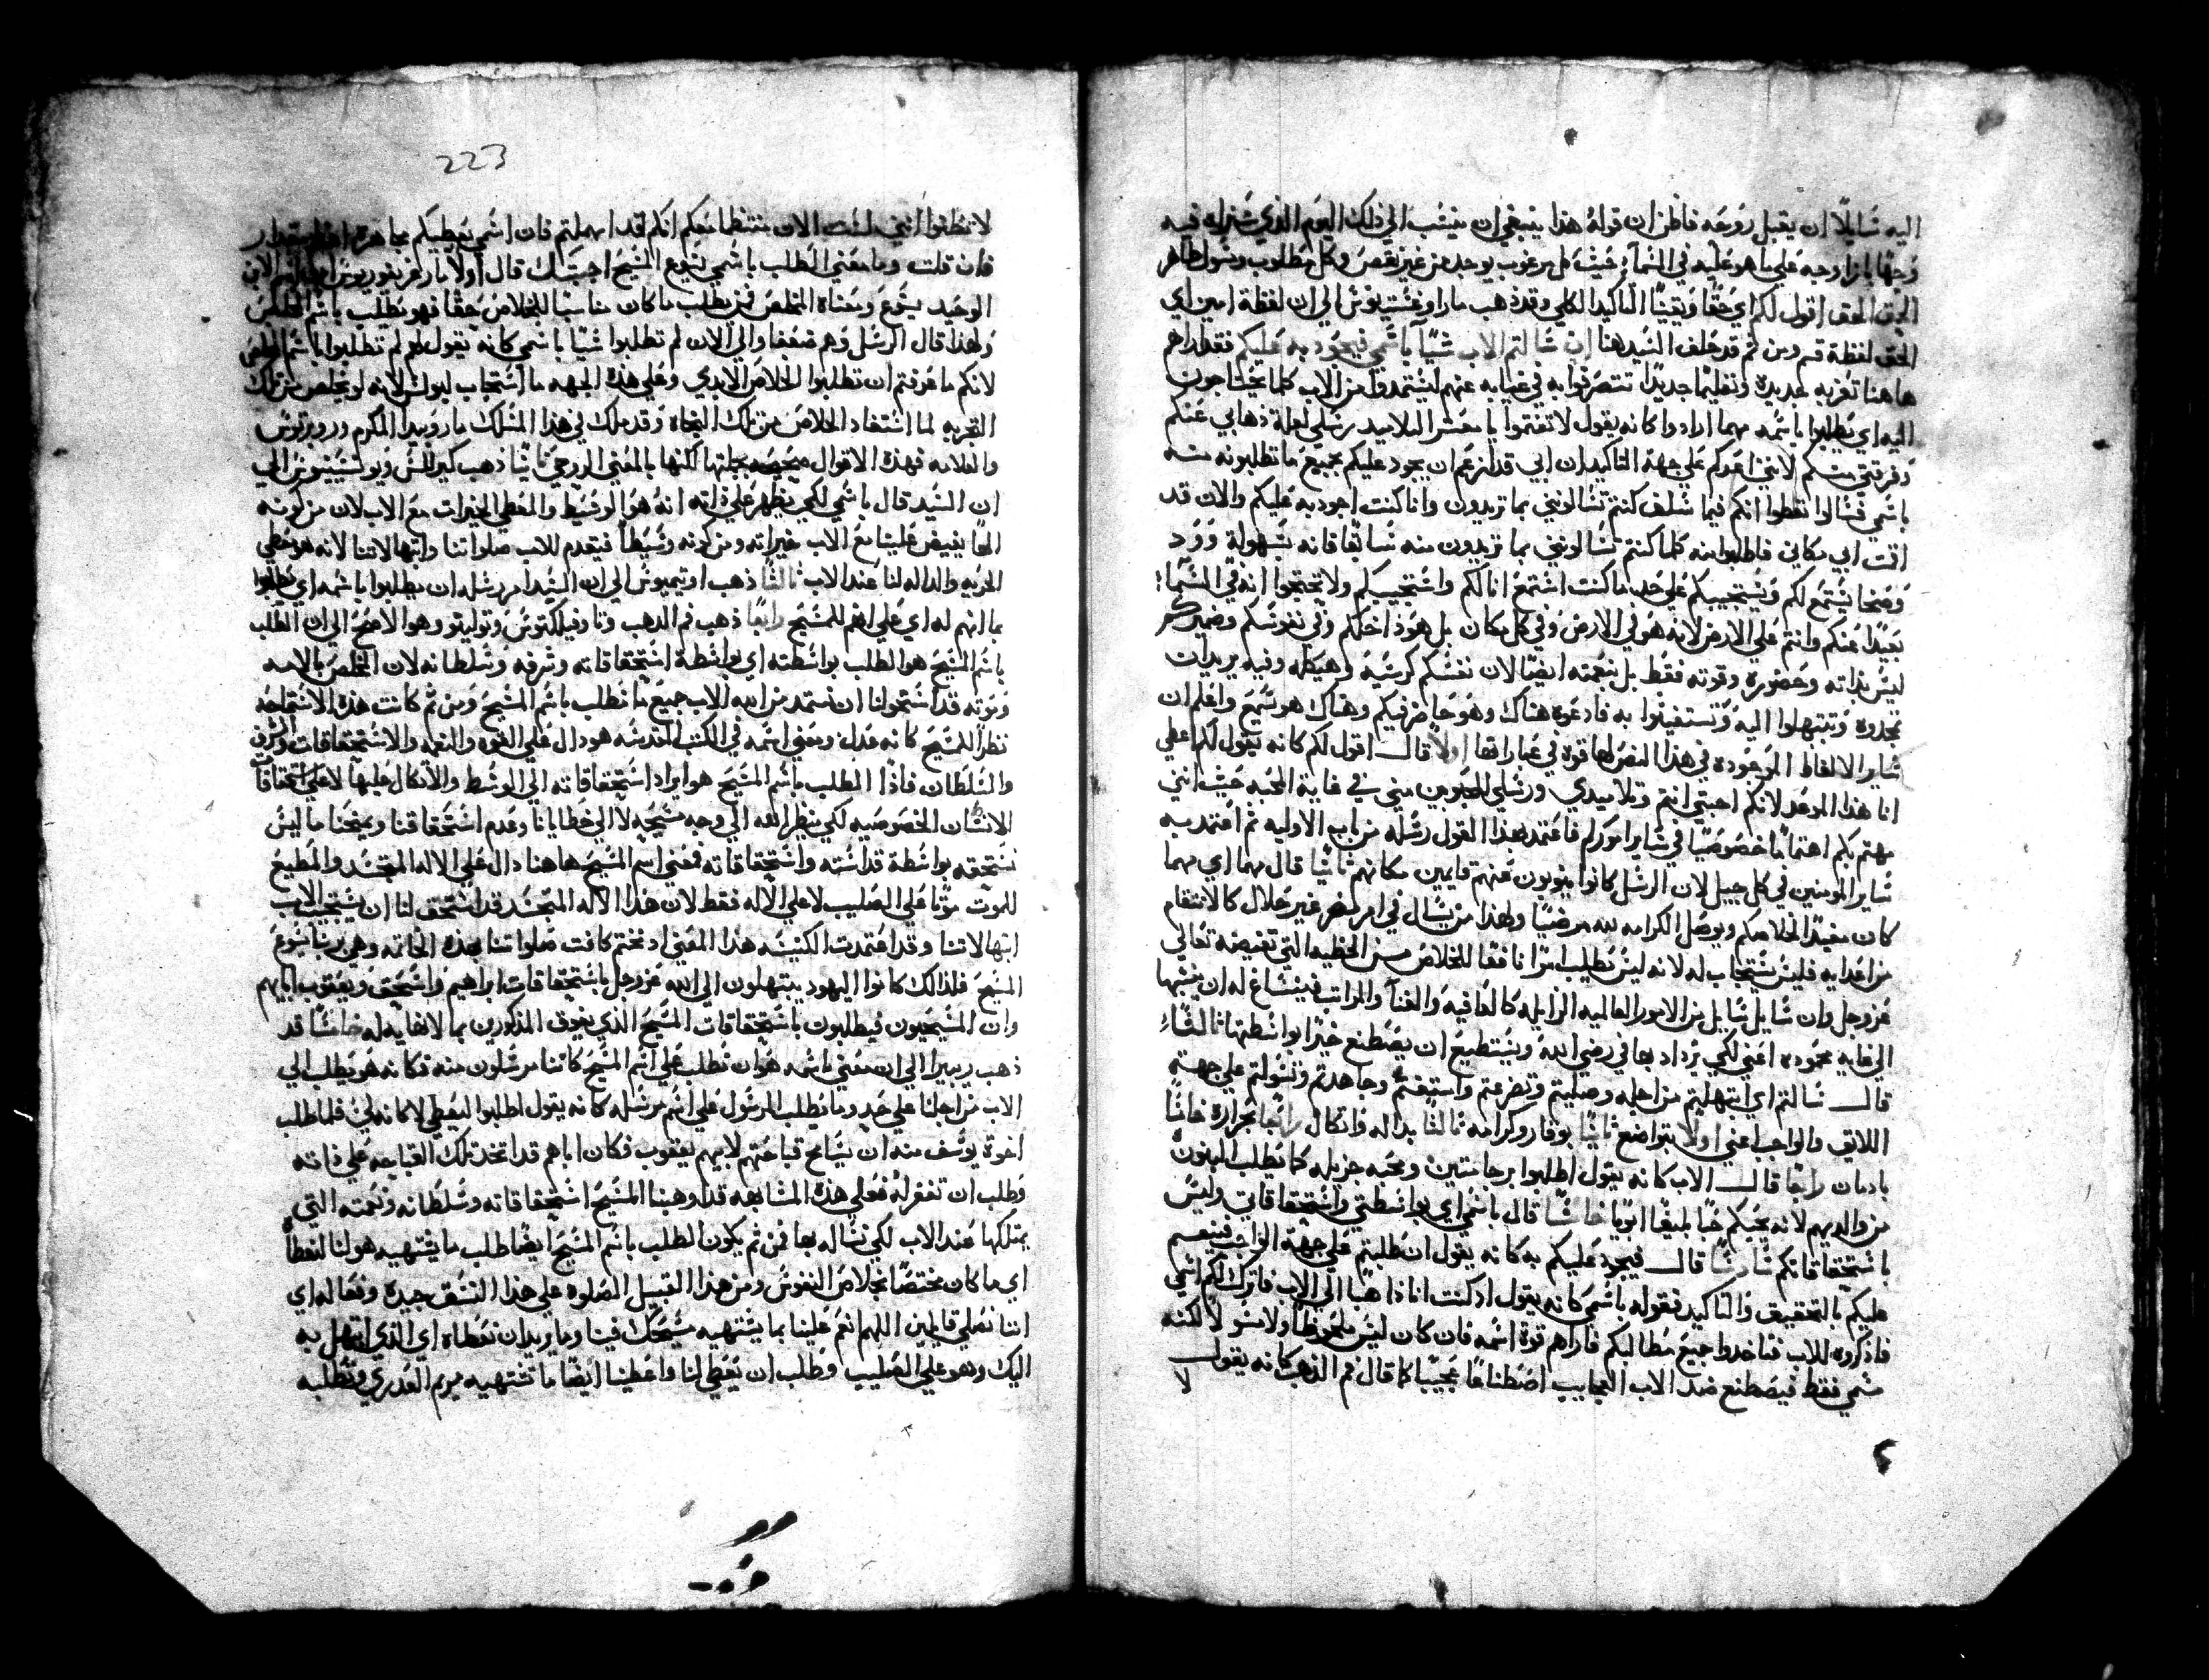 اليه شايلًا ان يقبل روحه فاظن ان قوله هذا ينبغي ان ينسب الي ذلك اليوم الذي سنراه فيه
وجهًا بازا وجه علي ما هو عليه في السمآء حيث كل مرغوب يوجد من غير نقص وكل مطلوب وسول ظاهر
الحق الحق اقول لكم اي حقًا ويقينًا التاكيد الكلي وقد ذهب مار اوغسطينوس الي ان لفظة امين اي
الحق لفظة قسم ومن ثم قد حلف السيد هنا ان سالتم الاب شيًا باسمي فيجود به عليكم فقد اراهم
هاهنا تعزيه جديده وتعليمًا جديدًا تتصرفوا به في غيابه عنهم ليستمدوا من الاب كلما يحتاجون
اليه اي يطلبوا باسمه مهما ارادوا كانه يقول لا تغتموا يا معشر التلاميد رسلي لعلة ذهابي عنكم
وفرقتي منكم لانني اعدكم علي جهة التاكيد ان ابي قد ازعم ان يجود عليكم بجميع ما تطلبونه منه
باسمي فسالوا تعطوا انكم فيما سلف كنتم تسالونني بما تريدون وانا كنت اجود به عليكم والان قد
اقت ابي مكاني فاطلبوا منه كلما كنتم تسالونني بما تريدون منه سابقًا فانه بسهولة وَوَد
وصخا يستمع لكم ويستجيبكم علي حد ما كنت استمع انا لكم واستجيبكم ولا تحتجوا انه في السمآء
بعيدًا عنكم وانتم علي الارض لانه هو في الارض وفي كل مكان بل هو داخلكم وفي نفوسكم وضميركم
ليس بذاته وحضوره وقوته فقط بل بنعمته ايضًا لان نفسكم كرسيه وهيكله وفيه يريد ان
تجدوه وتبتهلوا اليه وتستغيثوا به فادعوه هناك وهو حاضر فيكم وهناك هو يسمع واعلم ان
ساير الالفاظ الموجوده في هذا النص لها قوة في عباراتها اولًا قال اقول لكم كانه يقول لكم اعطي
انا هذا الموعد لانكم احبتي انتم وتلاميدي ورسلي المحبوبين مني في غاية المحبه حيث انني
مهتم بكم اهتمامًا خصوصيًا في ساير اموركم فاعتمد بهذا القول رسله من باب الاوليه ثم اعتمد به
ساير المومنين في كل جيل لان الرسل كانوا ينوبون عنهم قايمين مكانهم ثانيًا قال مهما اي مهما
كان مفيدًا لخلاصكم ويوصل الكرامه لله مرضيًا ولهذا من يسال في امر مضر غير حلال كالانتقام
من اعدايه فليس يستجاب له لانه ليس يطلب امرًا نافعًا للخلاص مسن الخطيه التي تغيضه تعالي
عز وجل وان سايل سايل من الامور العالميه الزايله كالعافيه والغنآ والمراتب فينساغ له ان ينسبها
الي غايه محموده اعني لكي يزداد بها في رضي الله ويستطيع ان يصطنع خيرًا بواسطتها ثالثًا
قال سالتم اي ابتهلتم من اجله وصليتم وتضرعتم واستغثتم وجاهدتم وتسولتم علي جهة
اللايق والواجب اعني اولًا بتواضع ثانيًا بوقار وكرامه ثالثًا بداله واتكال رابعًا بحرارة خامسًا
بادمان رابعًا قال الاب كانه يقول اطلبوا برجا متين ومحبه جزيله كما يطلب البنون
من والديهم لانه يحبكم حبًا بليغًا ابويًا خامسًا قال باسمي اي بواسطتي واستحقاقاتي وليس
باستحقاقاتكم سادسًا قال فيجود عليكم به كانه يقول ان طلبتم علي جهة الواجب فينعم
عليكم بالتحقيق والتاكيد فقوله باسمي كانه يقول اذ كنت انا ذاهبًا الي الاب فاترك لكم اسمي
فاذكروه للاب فتاخدوا جميع مطالبكم فاراهم قوة اسمه فان كان ليس ملحوظًا ولا مسولًا لكنه
مسمي فقط فيصطنع ضد الاب العجايب اصطناعًا عجيبًا كما قال فم الذهب كانه يقول
لا
223
لا تظنوا انني لست الان منتظمًا معكم انكم قد اهملتم فان اسمي يعطيكم مجاهرة
فان قلت وما معني الطلب باسمي يسوع المسيح اجبتك قال اولًا مار اغريغوريوس ان اسم الابن
الوحيد يسوع ومعناه المخلص فمن يطلب ما كان مناسبًا للخلاص حقًا فهو يطلب باسم المخلص
ولهذا قال الرسل وهم ضعفا والي الان لم تطلبوا شيًا باسمي كانه يقول لهم لم تطلبوا باسم المخلص
لانكم ما عرفتم ان تطلبوا الخلاص الابدي وعلي هذه الجهه ما استجاب لبولس لانه لو يخلص من تلك
التجربه لما استفاد الخلاص من تلك النجاه وقد سلك في هذا المسلك مار وبيدا المكرم وروبرتوس
والعلامه فهذه الاقوال صحيحه بجملتها لكنها بالمعني الروحي ثانيًا ذهب كيرللس وليونسيوس الي
ان السيد قال باسمي لكي يظهر علي ذاته انه هو الوسيط والمعطي الخيرات مع الاب لان من كونه
الهًا يفيض علينا مع الاب خيراته ومن كونه وسيطًا فيقدم للاب صلواتنا وابتهالاتنا لانه هو معطي
الحريه والداله لنا عند الاب ثالثًا ذهب اوتيميوس الي ان السيد امر رسله ان يطلبوا باسمه اي يطلبوا
بما انهم له اي علي انهم للمسيح رابعًا ذهب فم الدهب وتاوفيلكتوس وتوليتو وهو الاصح الي ان الطلب
باسم المسيح هو الطلب بواسطته اي بواسطة استحقاقاته وشرفه وسلطانه لان المخلص بالامه
وموته قد استحق لنا ان نستمد من الله الاب جميع ما نطلب باسم المسيح ومن ثم كانت هذه الاستماحه
نظرًا للمسيح كانه عدل ومعني اسمه في الكتب المقدسه هو دال علي القوه والنعمه والاستحقاقات والشرف
والسلطان فاذًا الطلب باسم المسيح هو ايراد استحقاقاته الي الوسط والاتكال عليها لا علي استحقاقات
الانسان الخصوصيه لكي ينظر الله الي وجه مسيحه لا الي خطايانا وعدم استحقاقنا ويمنحنا ما ليس
نستحقه بواسطة قداسته واستحقاقاته فمعني اسم المسيح هاهنا دال علي الاله المتجسد والمطيع
للموت موتًا علي الصليب لا علي الاله فقط لان هذا الاله المتجسد قد استحق لنا ان يستجيب الاب
ابتهالاتنا وقد اعتمدت الكنيسه هذا المعني اد تختم كافت صلواتنا بهذه الخاتمه وهي بربنا يسوع
المسيح فلذالك كانوا اليهود يبتهلون الي الله عز وجل باستحقاقات ابراهيم واسحق ويعقوب ابايهم
وان المسيحيون فيطلبون باستحقاقات المسيح الذي يفوق المذكورين بما لا نهايه له خامسًا قد
ذهب ريبيرا الي ان معني باسمه هو ان نطلب علي اسم المسيح كاننا مرسلون منه فكانه هو يطلب الي
الاب من اجلنا علي حد وما يطلب المرسول علي اسم مرسله كانه يقول اطلبوا ليعطي لا كانه لي فلما طلب
اخوة يوسف منه ان يسامح قباحتهم لابيهم يعقوب فكان اباهم قد اتخد تلك القباحه علي ذاته
وطلب ان تغفر له فعلي هذه المشابهه قد اوهبنا المسيح استحقاقاته وسلطانه ونعمته التي
يمتلكها عند الاب لكي نساله بها فمن ثم يكون الطلب باسم المسيح ايضًا طلب ما يشتهيه هو لنا لنعطا
اي ما كان مختصًا بخلاص النفوس ومن هذا القبيل الصلوه علي هذا النسق جيده وفعاله اي
اننا نصلي قايلين اللهم انعم علينا بما يشتهيه مسيحك فينا وما يريد ان نعطاه اي الذي ابتهل به
اليك وهو علي الصليب وطلب ان يعطي لنا واعطينا ايضًا ما تشتهيه مريم العدري وتطلبه